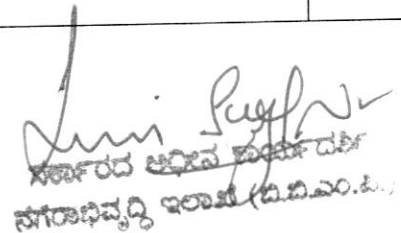 ಸರ್ಕಾರದ ಅಧೀನ ಕಾರ್ಯದರ್ಶಿ
ನಗರಾಭಿವೃದ್ಧಿ ಇಲಾಖೆ (ಬಿ.ಬಿ.ಎಂ.ಪಿ.)